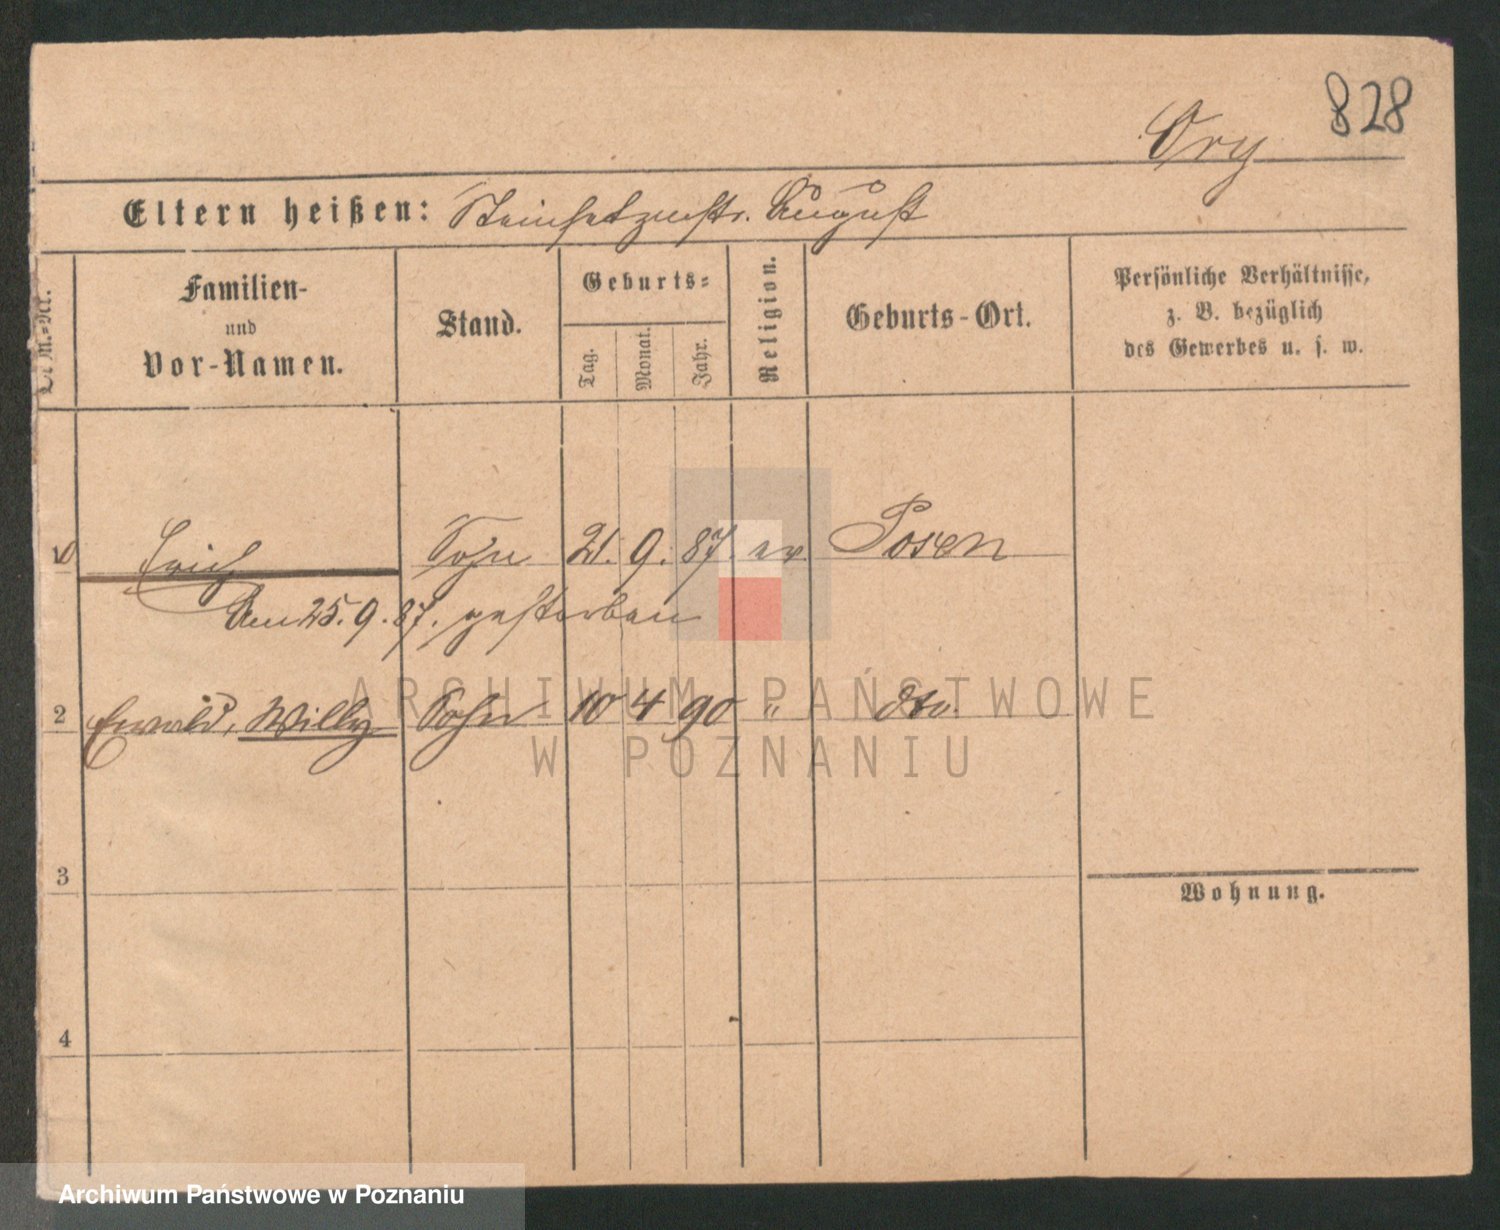 828
Ory
Eltern heißen: Steinsetzmstr. August
Lfd. M.-Nr.
Familien-
und
Vor-Namen.
Stand.
Geburts-
Tag.
Monat.
Jahr.
Religion.
Geburts-Ort.
Persönliche Verhältnisse,
z. B. bezüglich
des Gewerbes u. s. w.
Erich Sohn 21. 9. 87. ev Posen
Am 25. 9. 87. gestorben
2 Ewald, Willy Sohn 10 4 90 " dto.
ARCHIWUM PAŃSTWOWE
W POZNANIU
3
Wohnung.
4
Archiwum Państwowe w Poznaniu